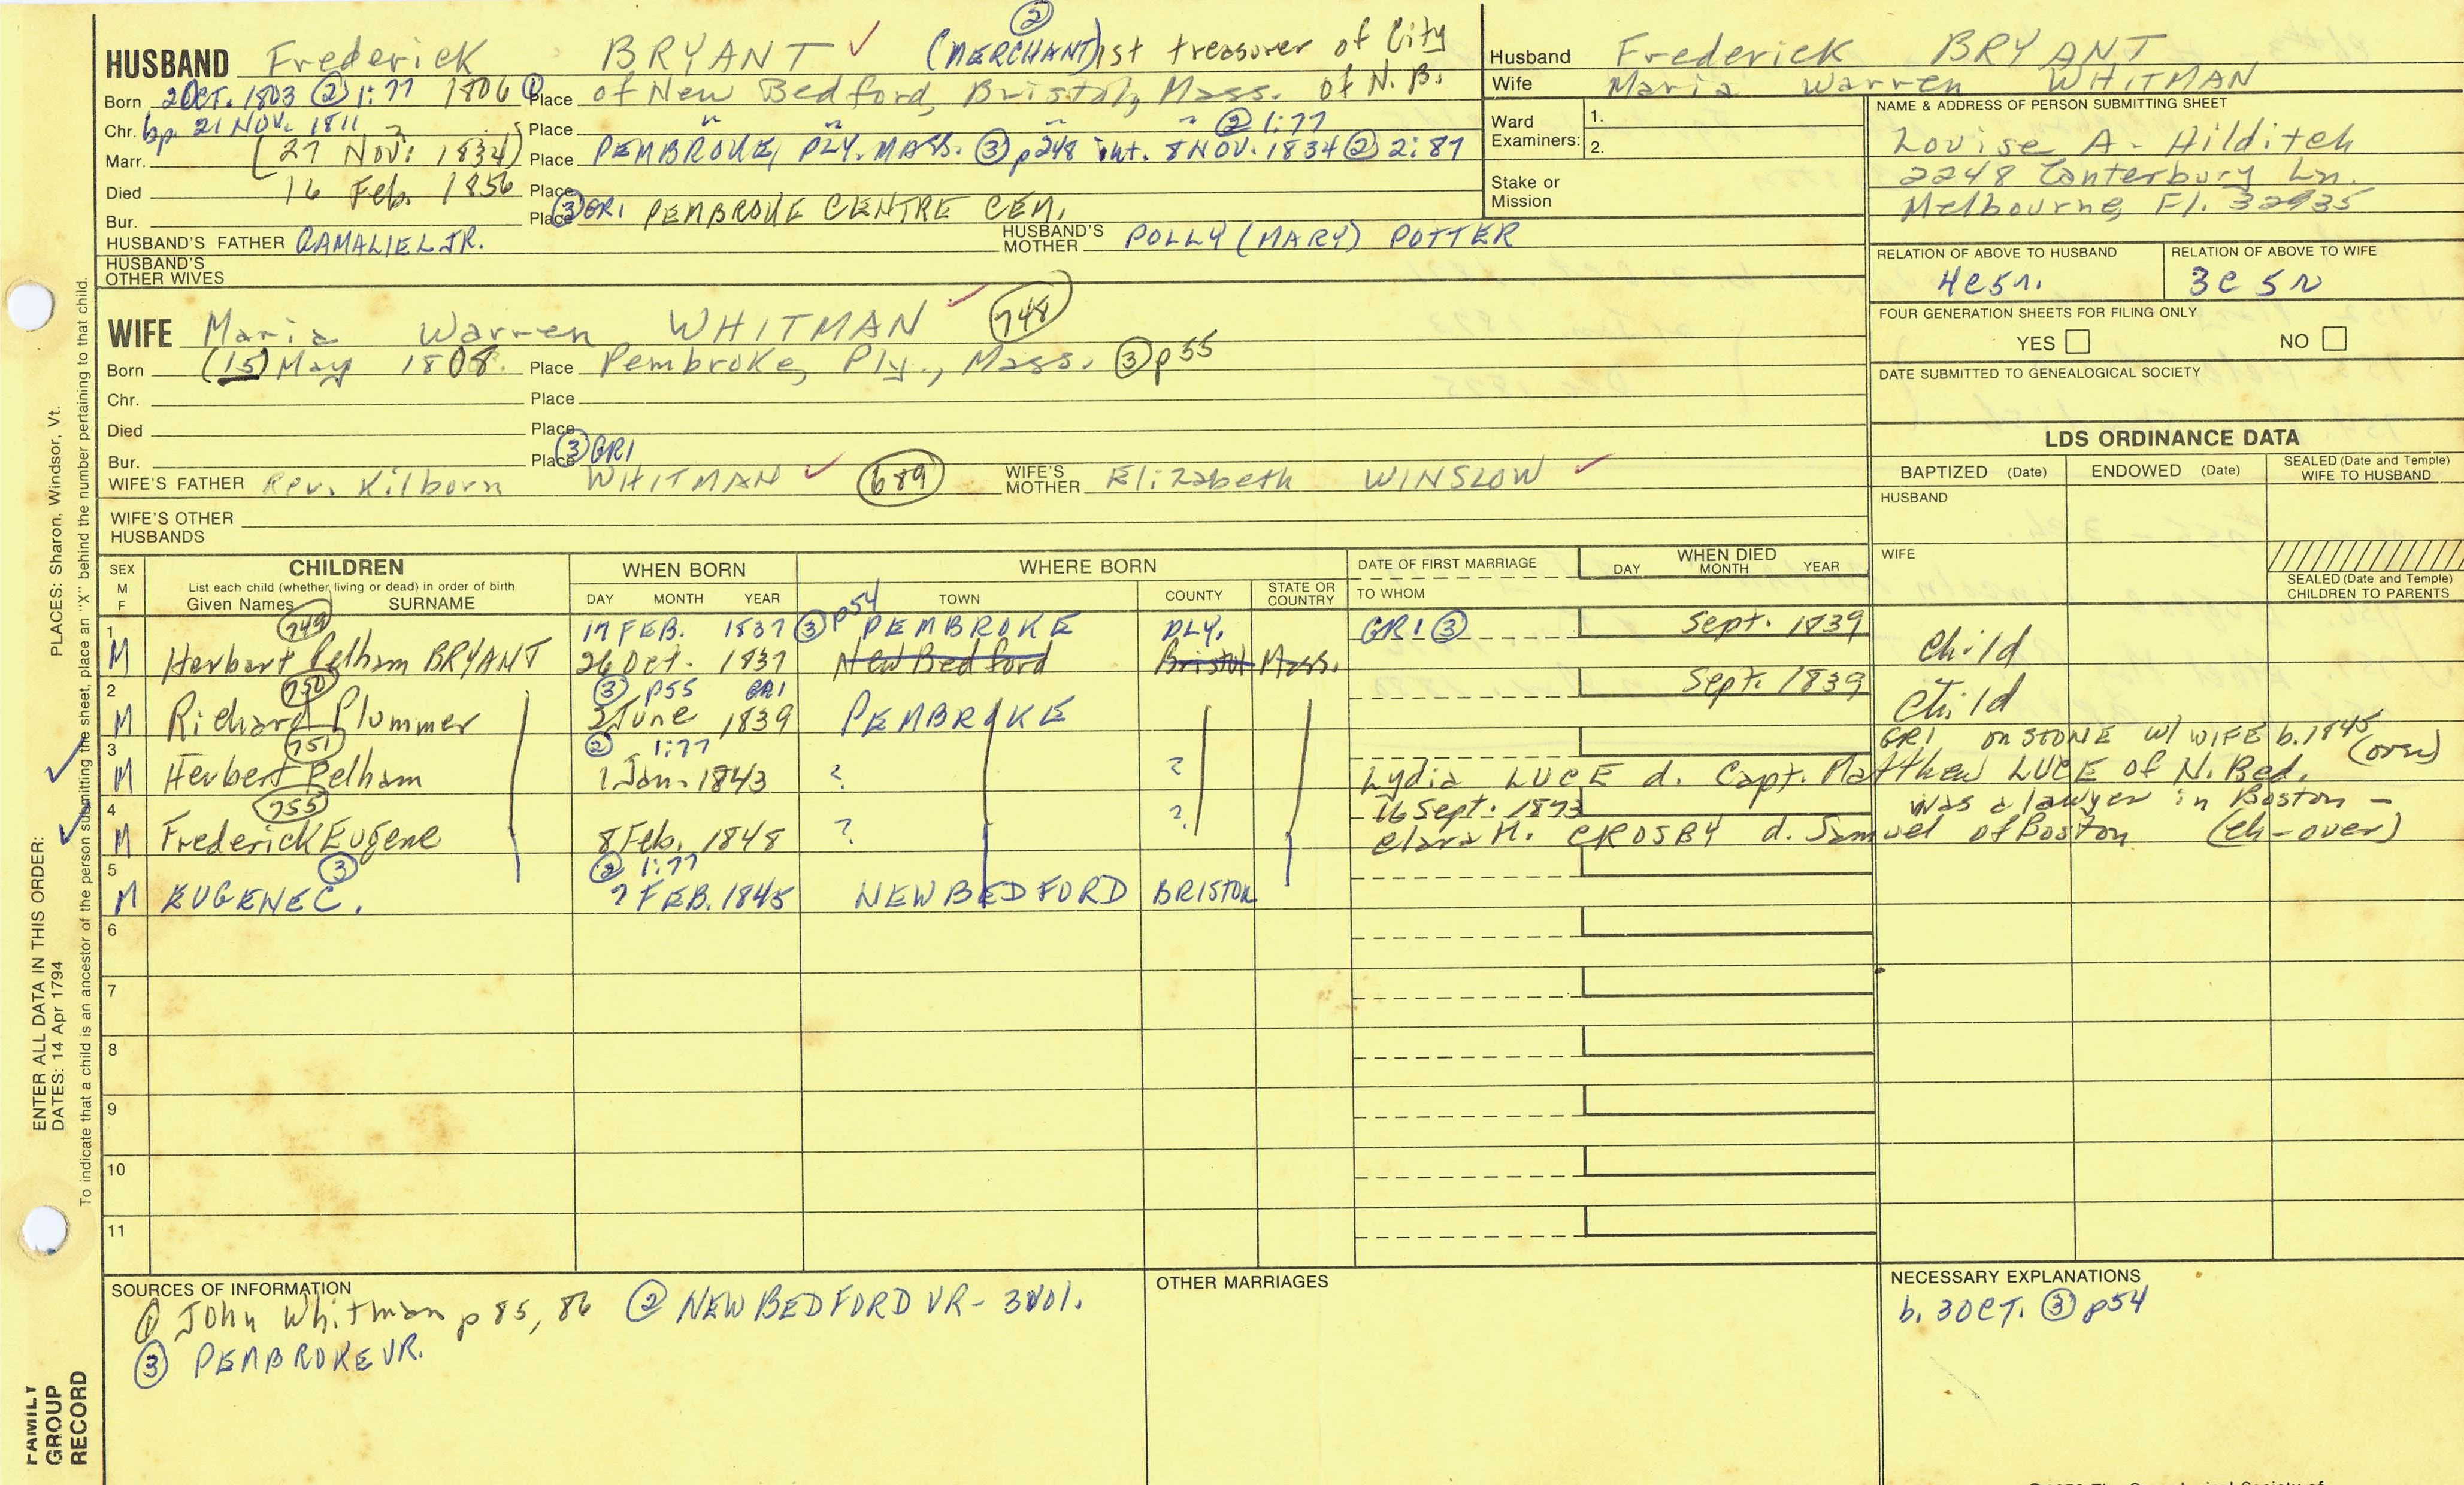 ②
HUSBAND Frederick BRYANT ✓ (MERCHANT) 1st treasurer of City
Born 2 OCT. 1803 ② 1:77 1806 ① Place of New Bedford, Bristol, Mass. of N.B.
Chr. bp 21 NOV. 1811 Place " " " " ② 1:77
Marr. (27 NOV. 1834) Place PEMBROKE, PLY. MASS. ③ p248 int. 8 NOV. 1834 ② 2:87
Died 16 Feb. 1856 Place
Bur. Place ③ GR1 PEMBROKE CENTRE CEM.
HUSBAND'S FATHER GAMALIEL JR. HUSBAND'S MOTHER POLLY (MARY) POTTER
HUSBAND'S OTHER WIVES
WIFE Maria Warren WHITMAN ✓ 748
Born (15) May 1808. Place Pembroke, Ply., Mass. ③ p55
Chr. Place
Died Place
Bur. Place ③ GR1
WIFE'S FATHER Rev. Kilborn WHITMAN ✓ 689 WIFE'S MOTHER Elizabeth WINSLOW ✓
WIFE'S OTHER HUSBANDS
Husband Frederick BRYANT
Wife Maria Warren WHITMAN
Ward Examiners: 1.
2.
Stake or Mission
NAME & ADDRESS OF PERSON SUBMITTING SHEET
Louise A. Hilditch
2248 Canterbury Ln.
Melbourne, Fl. 32935
RELATION OF ABOVE TO HUSBAND RELATION OF ABOVE TO WIFE
4C5R. 3C5R
FOUR GENERATION SHEETS FOR FILING ONLY
YES NO
DATE SUBMITTED TO GENEALOGICAL SOCIETY
LDS ORDINANCE DATA
BAPTIZED (Date) ENDOWED (Date) SEALED (Date and Temple) WIFE TO HUSBAND
HUSBAND
WIFE
SEALED (Date and Temple) CHILDREN TO PARENTS
SEX M F CHILDREN WHEN BORN WHERE BORN DATE OF FIRST MARRIAGE WHEN DIED
List each child (whether living or dead) in order of birth DAY MONTH YEAR
Given Names SURNAME DAY MONTH YEAR TOWN COUNTY STATE OR COUNTRY TO WHOM
749 ③ p54
1 17 FEB. 1837 PEMBROKE PLY. GR1 ③ Sept. 1839
M Herbert Pelham BRYANT 26 Oct. 1837 New Bedford Bristol Mass. Child
2 750 ③ p55 GR1 Sept. 1839
M Richard Plummer 2 June 1839 PEMBROKE Child
3 751 ② 1:77 GR1 ON STONE W/ WIFE b. 1845 (over)
M Herbert Pelham 1 Jan. 1843 ? ? Lydia LUCE d. Capt. Matthew LUCE of N. Bed.
4 755 ? 16 Sept. 1873 was a lawyer in Boston -
M Frederick Eugene 8 Feb. 1848 ? Clara H. CROSBY d. Samuel of Boston (ch-over)
5 ③ ② 1:77
M EUGENE C. 7 FEB. 1845 NEW BEDFORD BRISTOL
6
7
8
9
10
11
SOURCES OF INFORMATION
① John Whitman p 85, 86 ② NEW BEDFORD VR - 3 Vol.
③ PEMBROKE VR.
OTHER MARRIAGES
NECESSARY EXPLANATIONS
b. 3 OCT. ③ p54
ENTER ALL DATA IN THIS ORDER:
DATES: 14 Apr 1794 PLACES: Sharon, Windsor, Vt.
To indicate that a child is an ancestor of the person submitting the sheet, place an "X" behind the number pertaining to that child.
FAMILY GROUP RECORD